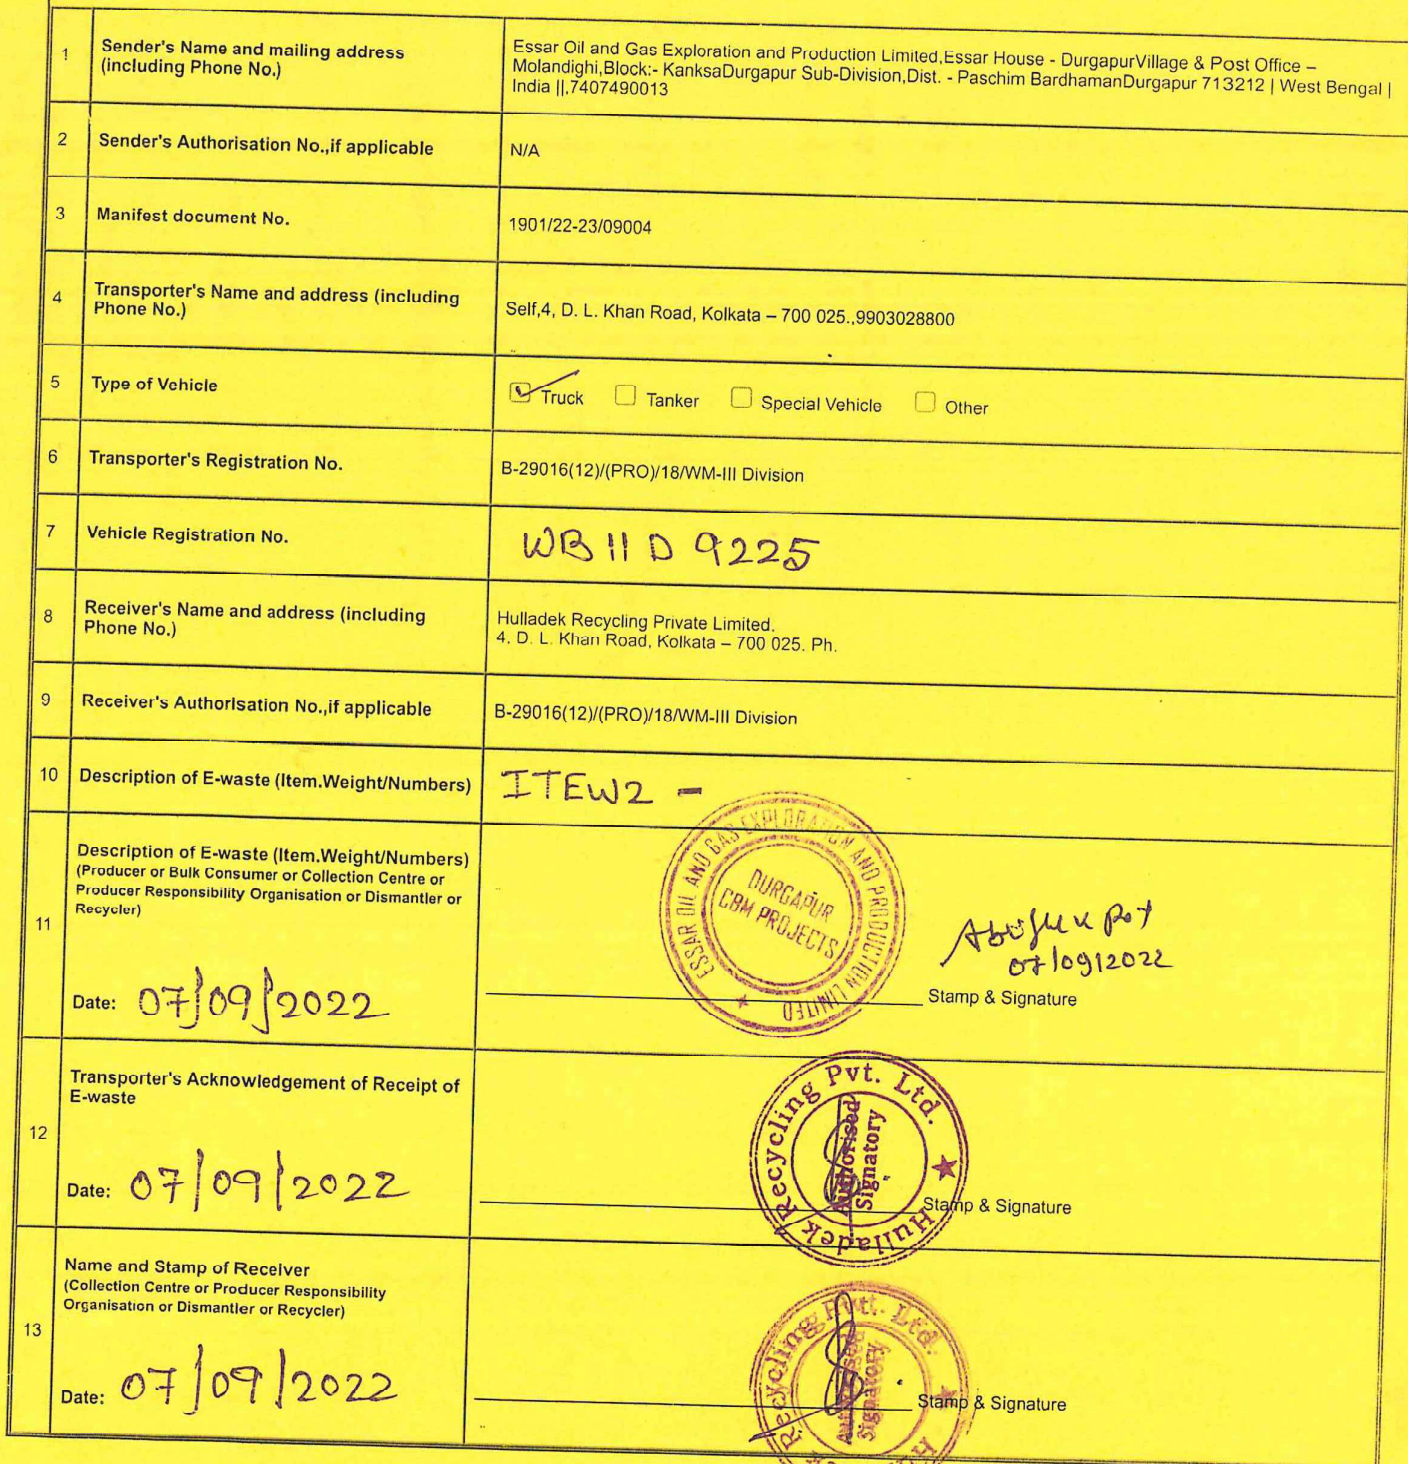 1
Sender's Name and mailing address
(including Phone No.)
Essar Oil and Gas Exploration and Production Limited,Essar House - DurgapurVillage & Post Office –
Molandighi,Block:- KanksaDurgapur Sub-Division,Dist. - Paschim BardhamanDurgapur 713212 | West Bengal |
India ||,7407490013
2
Sender's Authorisation No.,if applicable
N/A
3
Manifest document No.
1901/22-23/09004
4
Transporter's Name and address (including
Phone No.)
Self,4, D. L. Khan Road, Kolkata – 700 025.,9903028800
5
Type of Vehicle
Truck Tanker Special Vehicle Other
6
Transporter's Registration No.
B-29016(12)/(PRO)/18/WM-III Division
7
Vehicle Registration No.
WB 11 D 9225
8
Receiver's Name and address (including
Phone No.)
Hulladek Recycling Private Limited.
4, D. L. Khan Road, Kolkata – 700 025. Ph.
9
Receiver's Authorisation No.,if applicable
B-29016(12)/(PRO)/18/WM-III Division
10
Description of E-waste (Item.Weight/Numbers)
ITEW2 -
11
Description of E-waste (Item.Weight/Numbers)
(Producer or Bulk Consumer or Collection Centre or
Producer Responsibility Organisation or Dismantler or
Recycler)
Date: 07/09/2022
ESSAR OIL AND GAS EXPLORATION AND PRODUCTION LIMITED
DURGAPUR
CBM PROJECTS
07/09/2022
Stamp & Signature
12
Transporter's Acknowledgement of Receipt of
E-waste
Date: 07/09/2022
Hulladek Recycling Pvt. Ltd.
Authorised
Signatory
Stamp & Signature
13
Name and Stamp of Receiver
(Collection Centre or Producer Responsibility
Organisation or Dismantler or Recycler)
Date: 07/09/2022
Recycling Pvt. Ltd.
Authorised
Signatory
Stamp & Signature